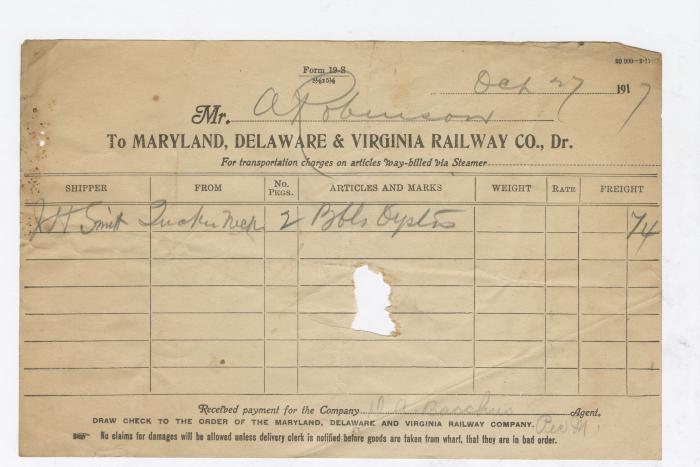 Form 19-S
Oct 27 1917
Mr. A Robinson
To MARYLAND, DELAWARE & VIRGINIA RAILWAY CO., Dr.
For transportation charges on articles way-billed via Steamer
SHIPPER FROM No. PKGS. ARTICLES AND MARKS WEIGHT RATE FREIGHT
J H Smith Tucker Neck 2 Bbls Oysters 74
Received payment for the Company Agent.
DRAW CHECK TO THE ORDER OF THE MARYLAND, DELAWARE AND VIRGINIA RAILWAY COMPANY.
No claims for damages will be allowed unless delivery clerk is notified before goods are taken from wharf, that they are in bad order.